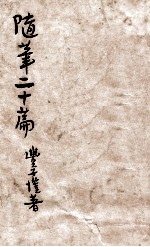 隨筆二十篇
豐子愷著